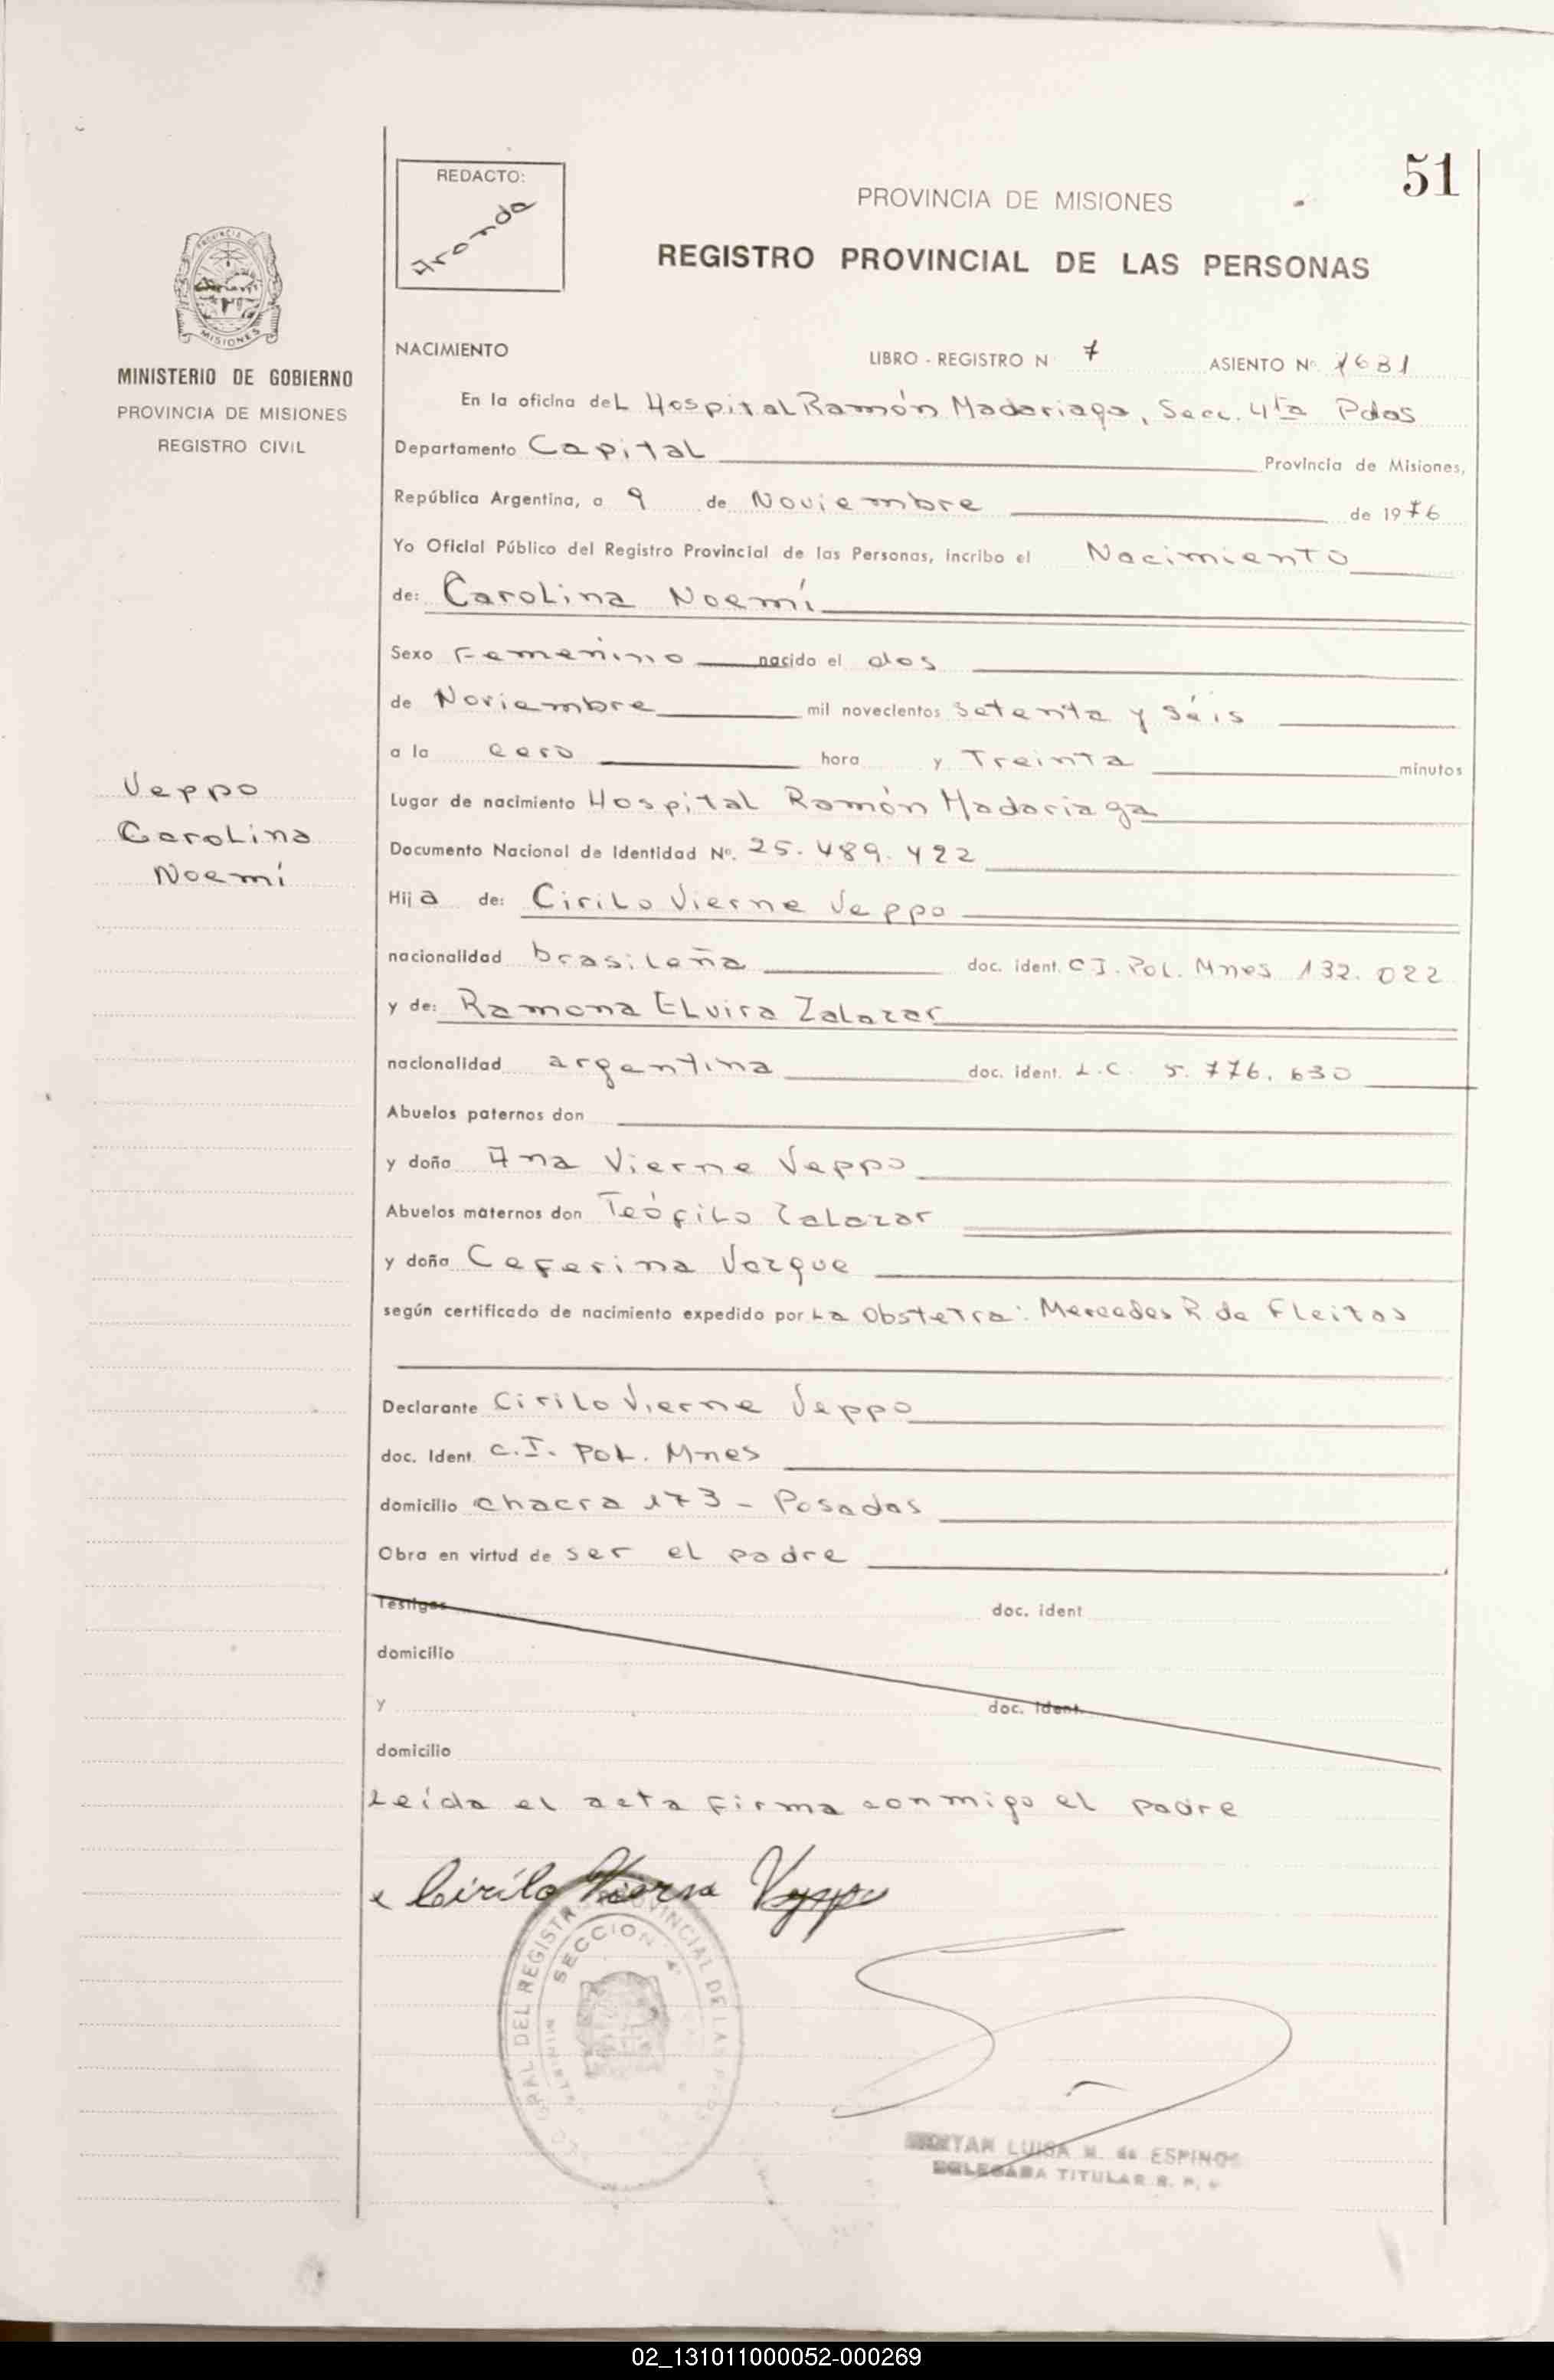 51
REDACTO:
Aranda
PROVINCIA DE MISIONES
REGISTRO PROVINCIAL DE LAS PERSONAS
MISIONES
MINISTERIO DE GOBIERNO
PROVINCIA DE MISIONES
REGISTRO CIVIL
Veppo
Carolina
Noemí
NACIMIENTO LIBRO - REGISTRO N 7 ASIENTO Nº 1631
En la oficina del Hospital Ramón Madariaga, Secc. 4ta Pdas
Departamento Capital Provincia de Misiones,
República Argentina, a 9 de Noviembre de 1976
Yo Oficial Público del Registro Provincial de las Personas, incribo el Nacimiento
de: Carolina Noemí
Sexo Femenino nacido el dos
de Noviembre mil novecientos setenta y séis
a la cero hora y Treinta minutos
Lugar de nacimiento Hospital Ramón Madariaga
Documento Nacional de Identidad Nº. 25.489.422
Hija de: Cirilo Vierne Veppo
nacionalidad brasileña doc. ident. C I. Pol. Mnes 132.022
y de: Ramona Elvira Zalazar
nacionalidad argentina doc. ident. L.C. 5.776.630
Abuelos paternos don
y doña Ana Vierne Veppo
Abuelos maternos don Teófilo Zalazar
y doña Ceferina Vazque
según certificado de nacimiento expedido por La Obstetra: Mercedes R. de Fleitas
Declarante Cirilo Vierne Veppo
doc. Ident C.I. Pol. Mnes
domicilio chacra 173 - Posadas
Obra en virtud de ser el padre
Testigos doc. ident
domicilio
y doc. ident.
domicilio
Leída el acta firma conmigo el padre
Cirilo Vierne Veppo
DEL REGISTRO PROVINCIAL DE LAS
SECCION 4
LUISA M. de ESPINO
DELEGADA TITULAR R. P.
02_131011000052-000269